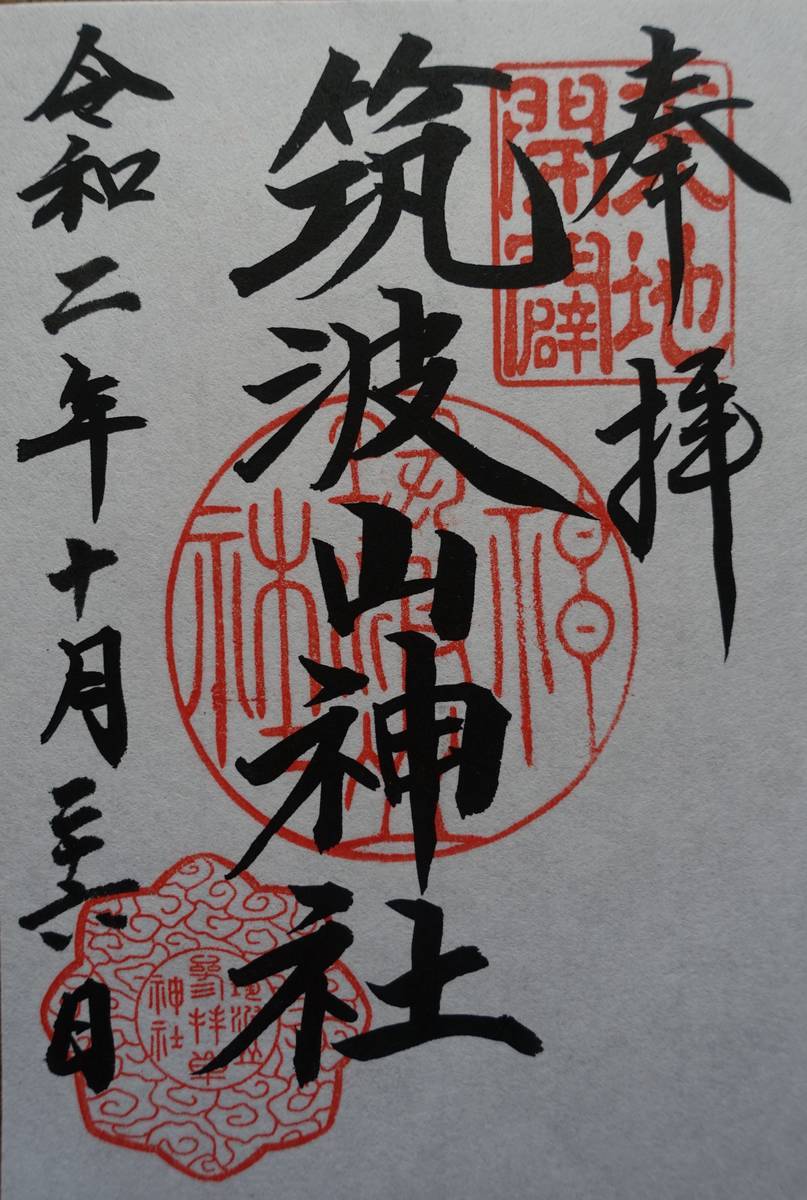 奉拝
天地
開闢
筑波山神社
筑波山
神社
令和二年十月二十六日